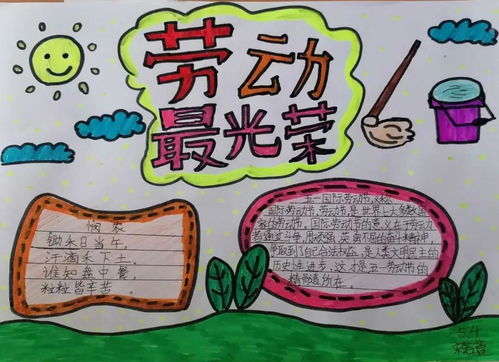 劳动
最光荣
悯农
锄禾日当午,
汗滴禾下土.
谁知盘中餐,
粒粒皆辛苦.
五一国际劳动节又称
国际劳动节,劳动节.是世界上大多数国
家的劳动节.国际劳动节的意义在于劳动
者通过斗争,用顽强,英勇不屈的奋斗精神,
争取到了自己合法权益.是人类文明民主的
历史性进步.这才是五一劳动节的
精髓所在.
5.4